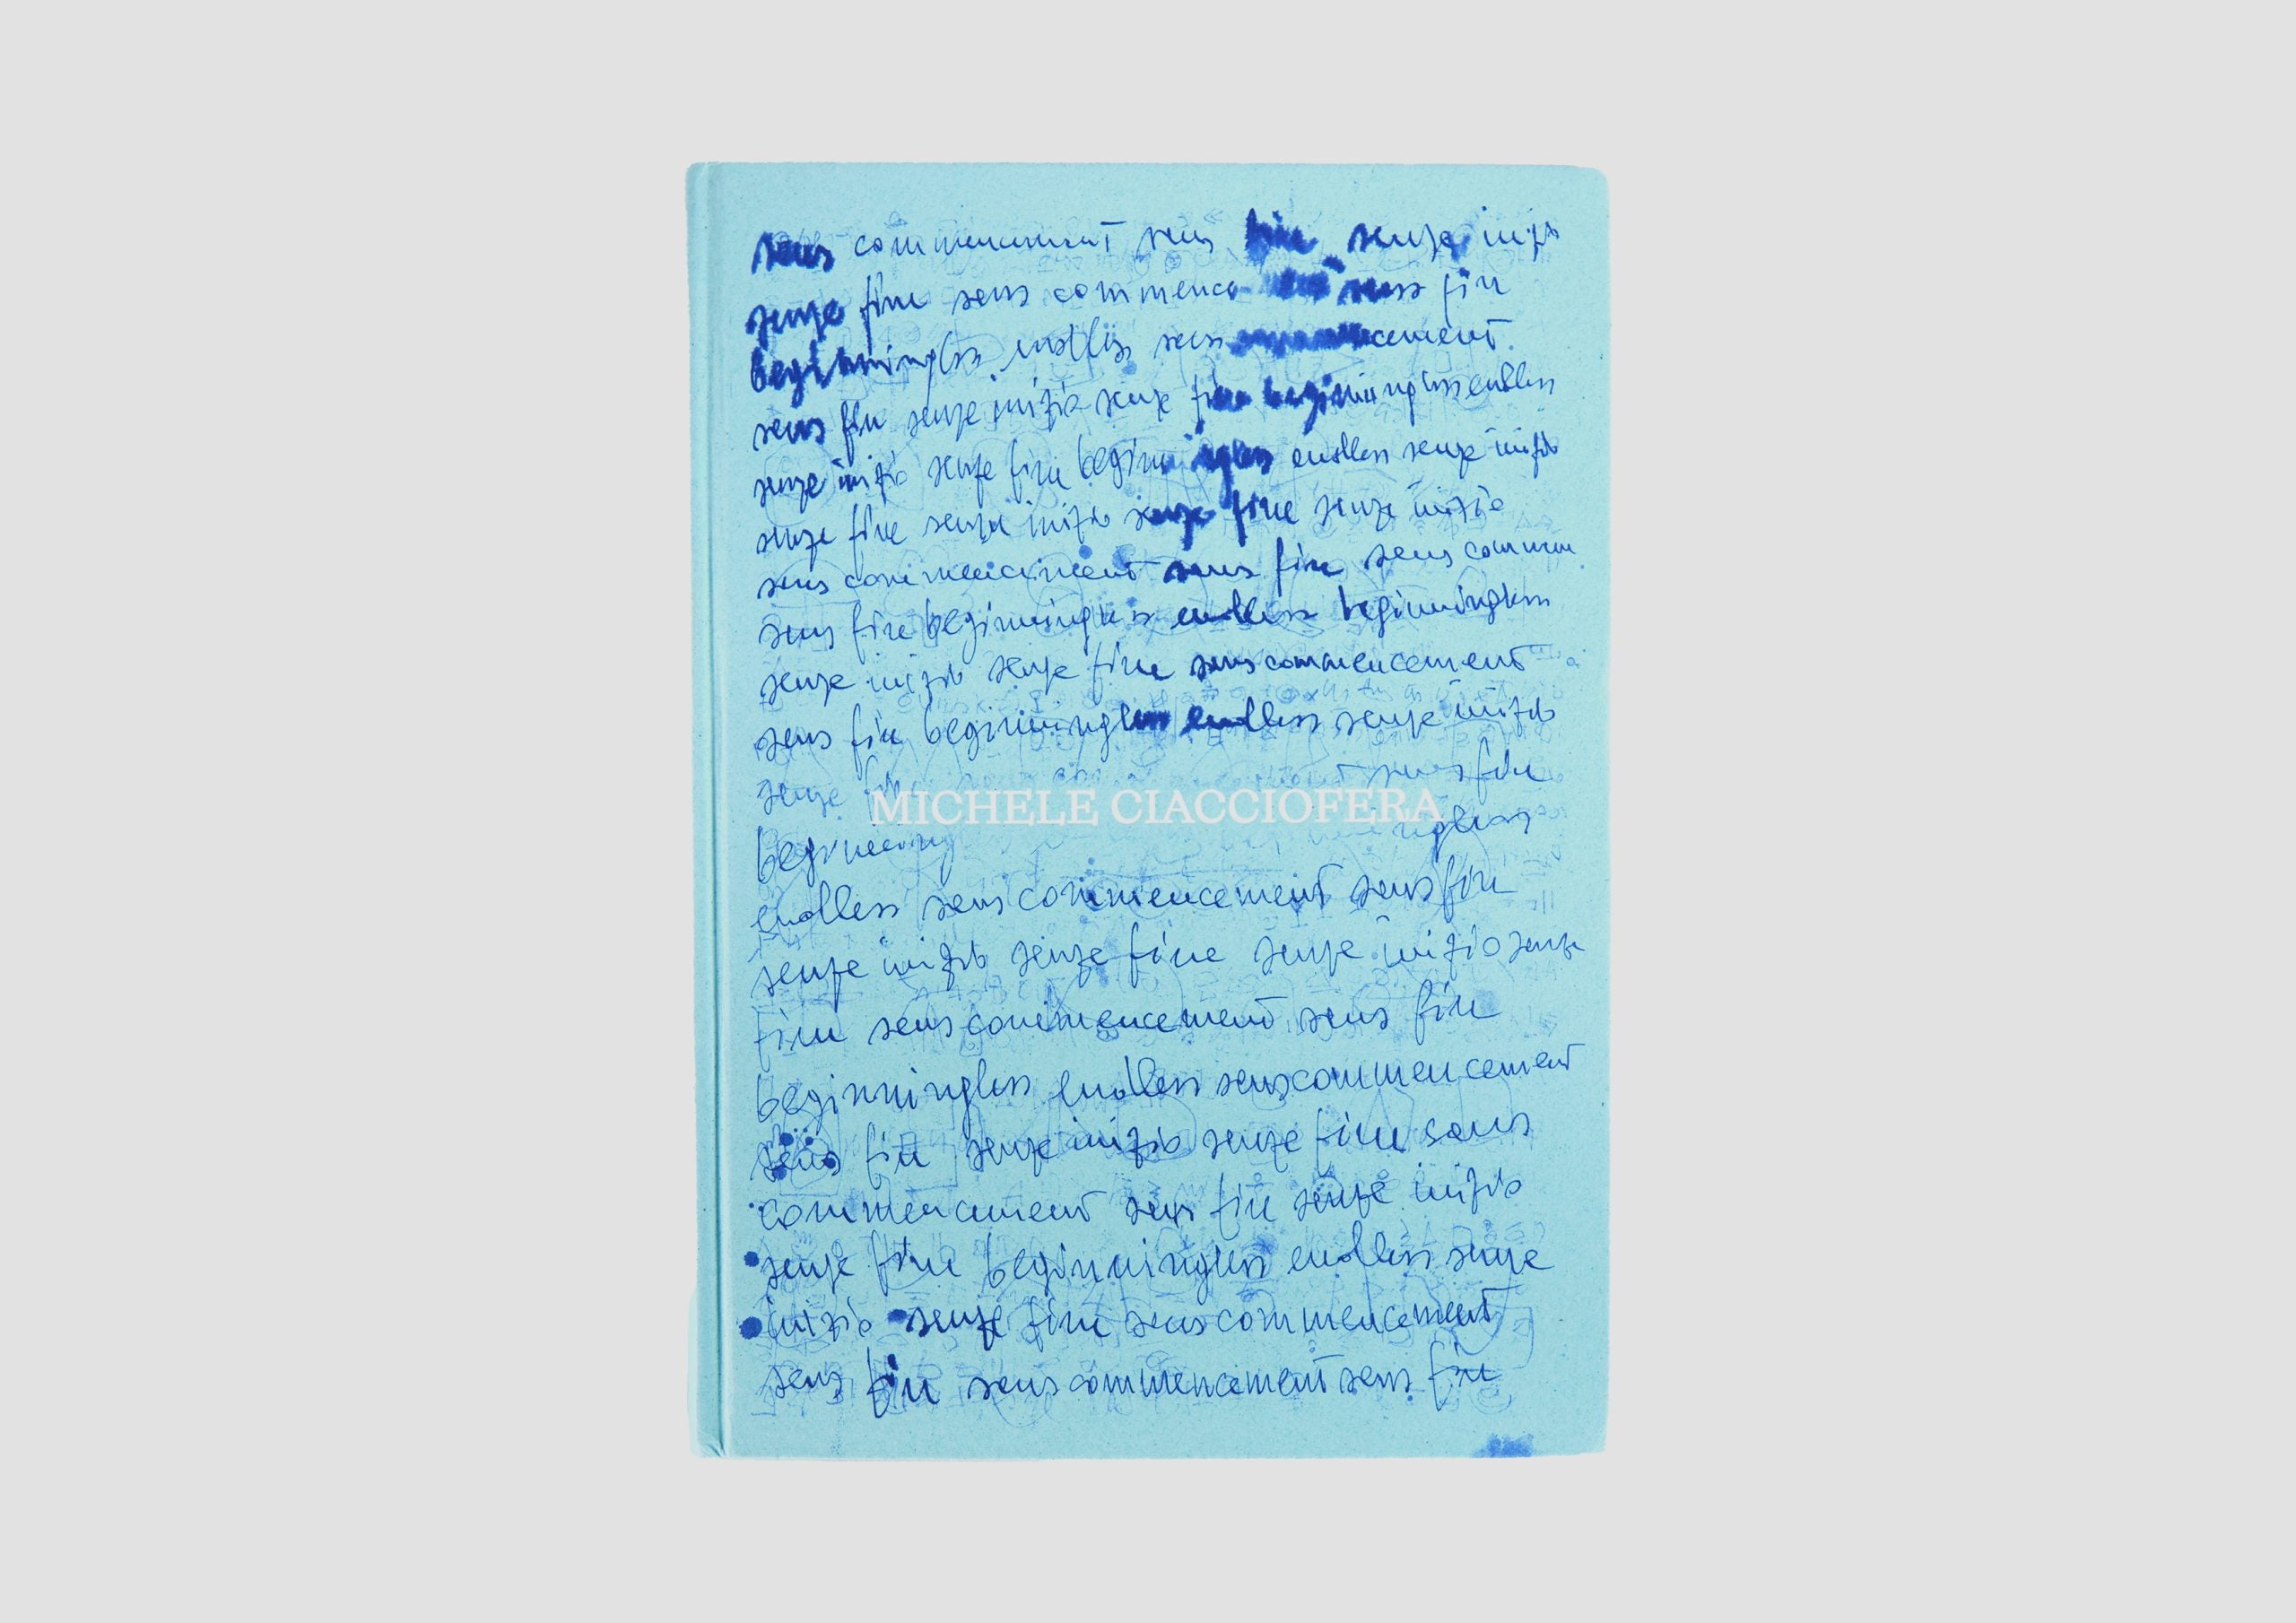 sans commencement sans fine senza inizio
senza fine sans commence sans fin
beginningless endless sans commencement
sans fin senza inizio senza fine beginningless endless
senza inizio senza fine beginningless endless senza inizio
senza fine senza inizio senza fine senza inizio
sans commencement sans fin sans commen
sans fin beginningless endless beginningless
senza inizio senza fine sans commencement
sans fin beginningless endless senza inizio
senza sans fin
MICHELE CIACCIOFERA
beginning ngless
endless sans commencement sans fin
senza inizio senza fine senza inizio senza
fine sans commencement sans fin
beginningless endless sans commencement
sans fin senza inizio senza fine sans
commencement sans fin senza inizio
senza fine beginningless endless senza
inizio senza fine sans commencement
sans fin sans commencement sans fin